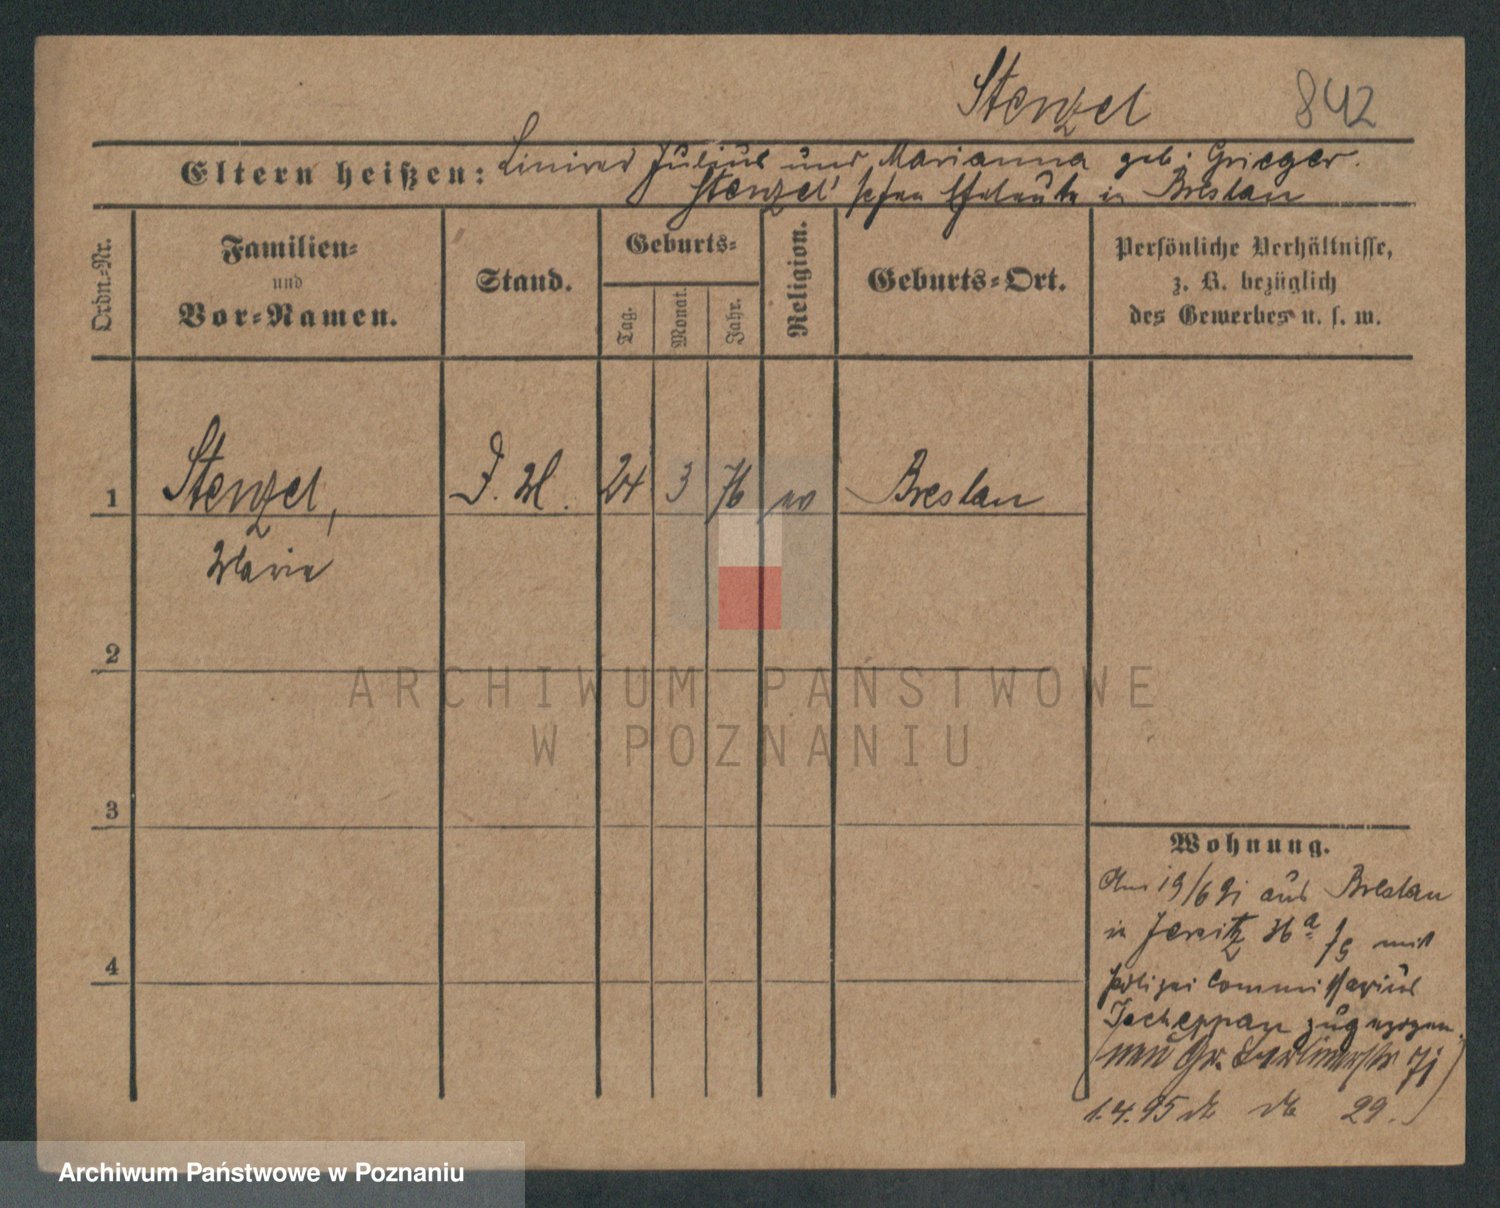 Stenzel 842
Eltern heißen: Julius und Marianna geb. Grieger.
Stenzel'schen Eheleute in Breslau
Ordn.-Nr.
Familien-
und
Vor-Namen.
Stand.
Geburts-
Tag.
Monat.
Jahr.
Religion.
Geburts-Ort.
Persönliche Verhältnisse,
z. B. bezüglich
des Gewerbes u. s. w.
1 Stenzel, D. M. 24 3 76 ev Breslau
Marie
2
3
4
Wohnung.
Am 19/6 91 aus Breslau
in Jersitz 36a mit
Polizei Commissarius
Tscheppan zugezogen.
(neu Gr. Berlinerstr 71)
1.4.95 29.
ARCHIWUM PAŃSTWOWE
W POZNANIU
Archiwum Państwowe w Poznaniu